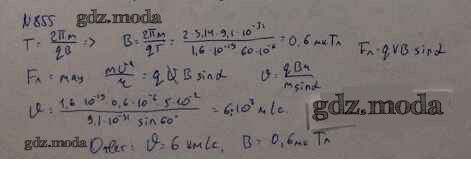 N 855 gdz.moda
T = 2πm / qB => B = 2πm / qT = 2·3,14·9,1·10⁻³¹ / 1,6·10⁻¹⁹ 60·10⁻⁶ = 0,6 мкТл Fл = qVB sinα
Fл = may mv² / r = qVB sinα v = qBr / m sinα
v = 1,6·10⁻¹⁹·0,6·10⁻⁶·5·10⁻² / 9,1·10⁻³¹ sin 60° = 6·10³ м/с. gdz.moda
gdz.moda Ответ: v = 6 км/с, B = 0,6 мкТл